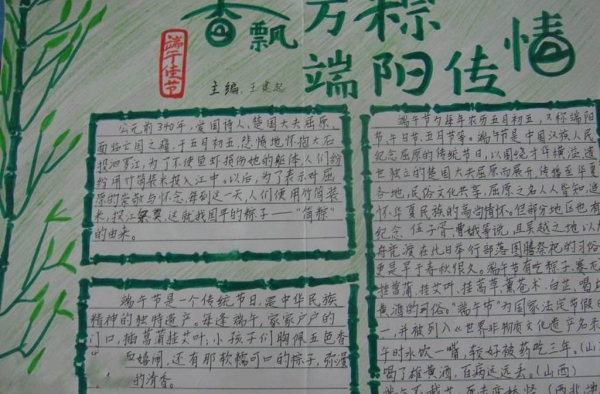 香飘万粽
端阳传情
端午佳节
主编
公元前340年,爱国诗人、楚国大夫屈原,
面临亡国之痛,于五月初五,悲愤地怀抱大石
投汨下江,为了不使鱼虾损伤他的躯体,人们纷
纷用竹筒装米投入江中。以后,为了表示对屈
原的崇敬与怀念,每到这一天,人们便用竹筒装
米,投江祭奠,这就我国早的粽子——"筒粽"
的由来。
端午节是一个传统节日,是中华民族
精神的独特遗产,每逢端午,家家户户的
门口,插菖蒲挂艾叶,小孩子们胸佩五色香
闹,还有那软糯可口的粽子,弥漫
的清香。
端午节为每年农历五月初五,又称端阳
节、午日节、五月节等。端午节是中国汉族人民
纪念屈原的传统节日,以围绕才华横溢、遗
世独立的楚国大夫屈原而展开,传播至华夏
各地,民俗文化共享,屈原之名人人皆知,追
怀华夏民族的高尚情怀。但部分地区也有
纪念伍子胥、曹娥等说,且吴越之地以
舟竞渡在此日举行部落图腾祭祀的习俗
更是早于春秋很久。端午节有吃粽子,赛龙
挂菖蒲、挂艾叶、薰苍术、白芷、喝
黄酒的习俗。"端午节"为国家法定节假日
一,并被列入《世界非物质文化遗产名录
午时水饮一嘴,较好被药吃三年。(山
喝了雄黄酒,百病远远去。(山西)
(西北